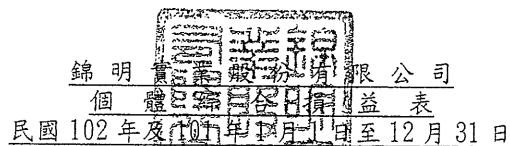 錦明實業股份有限公司
個體綜合損益表
民國 102 年及 101 年 1 月 1 日至 12 月 31 日